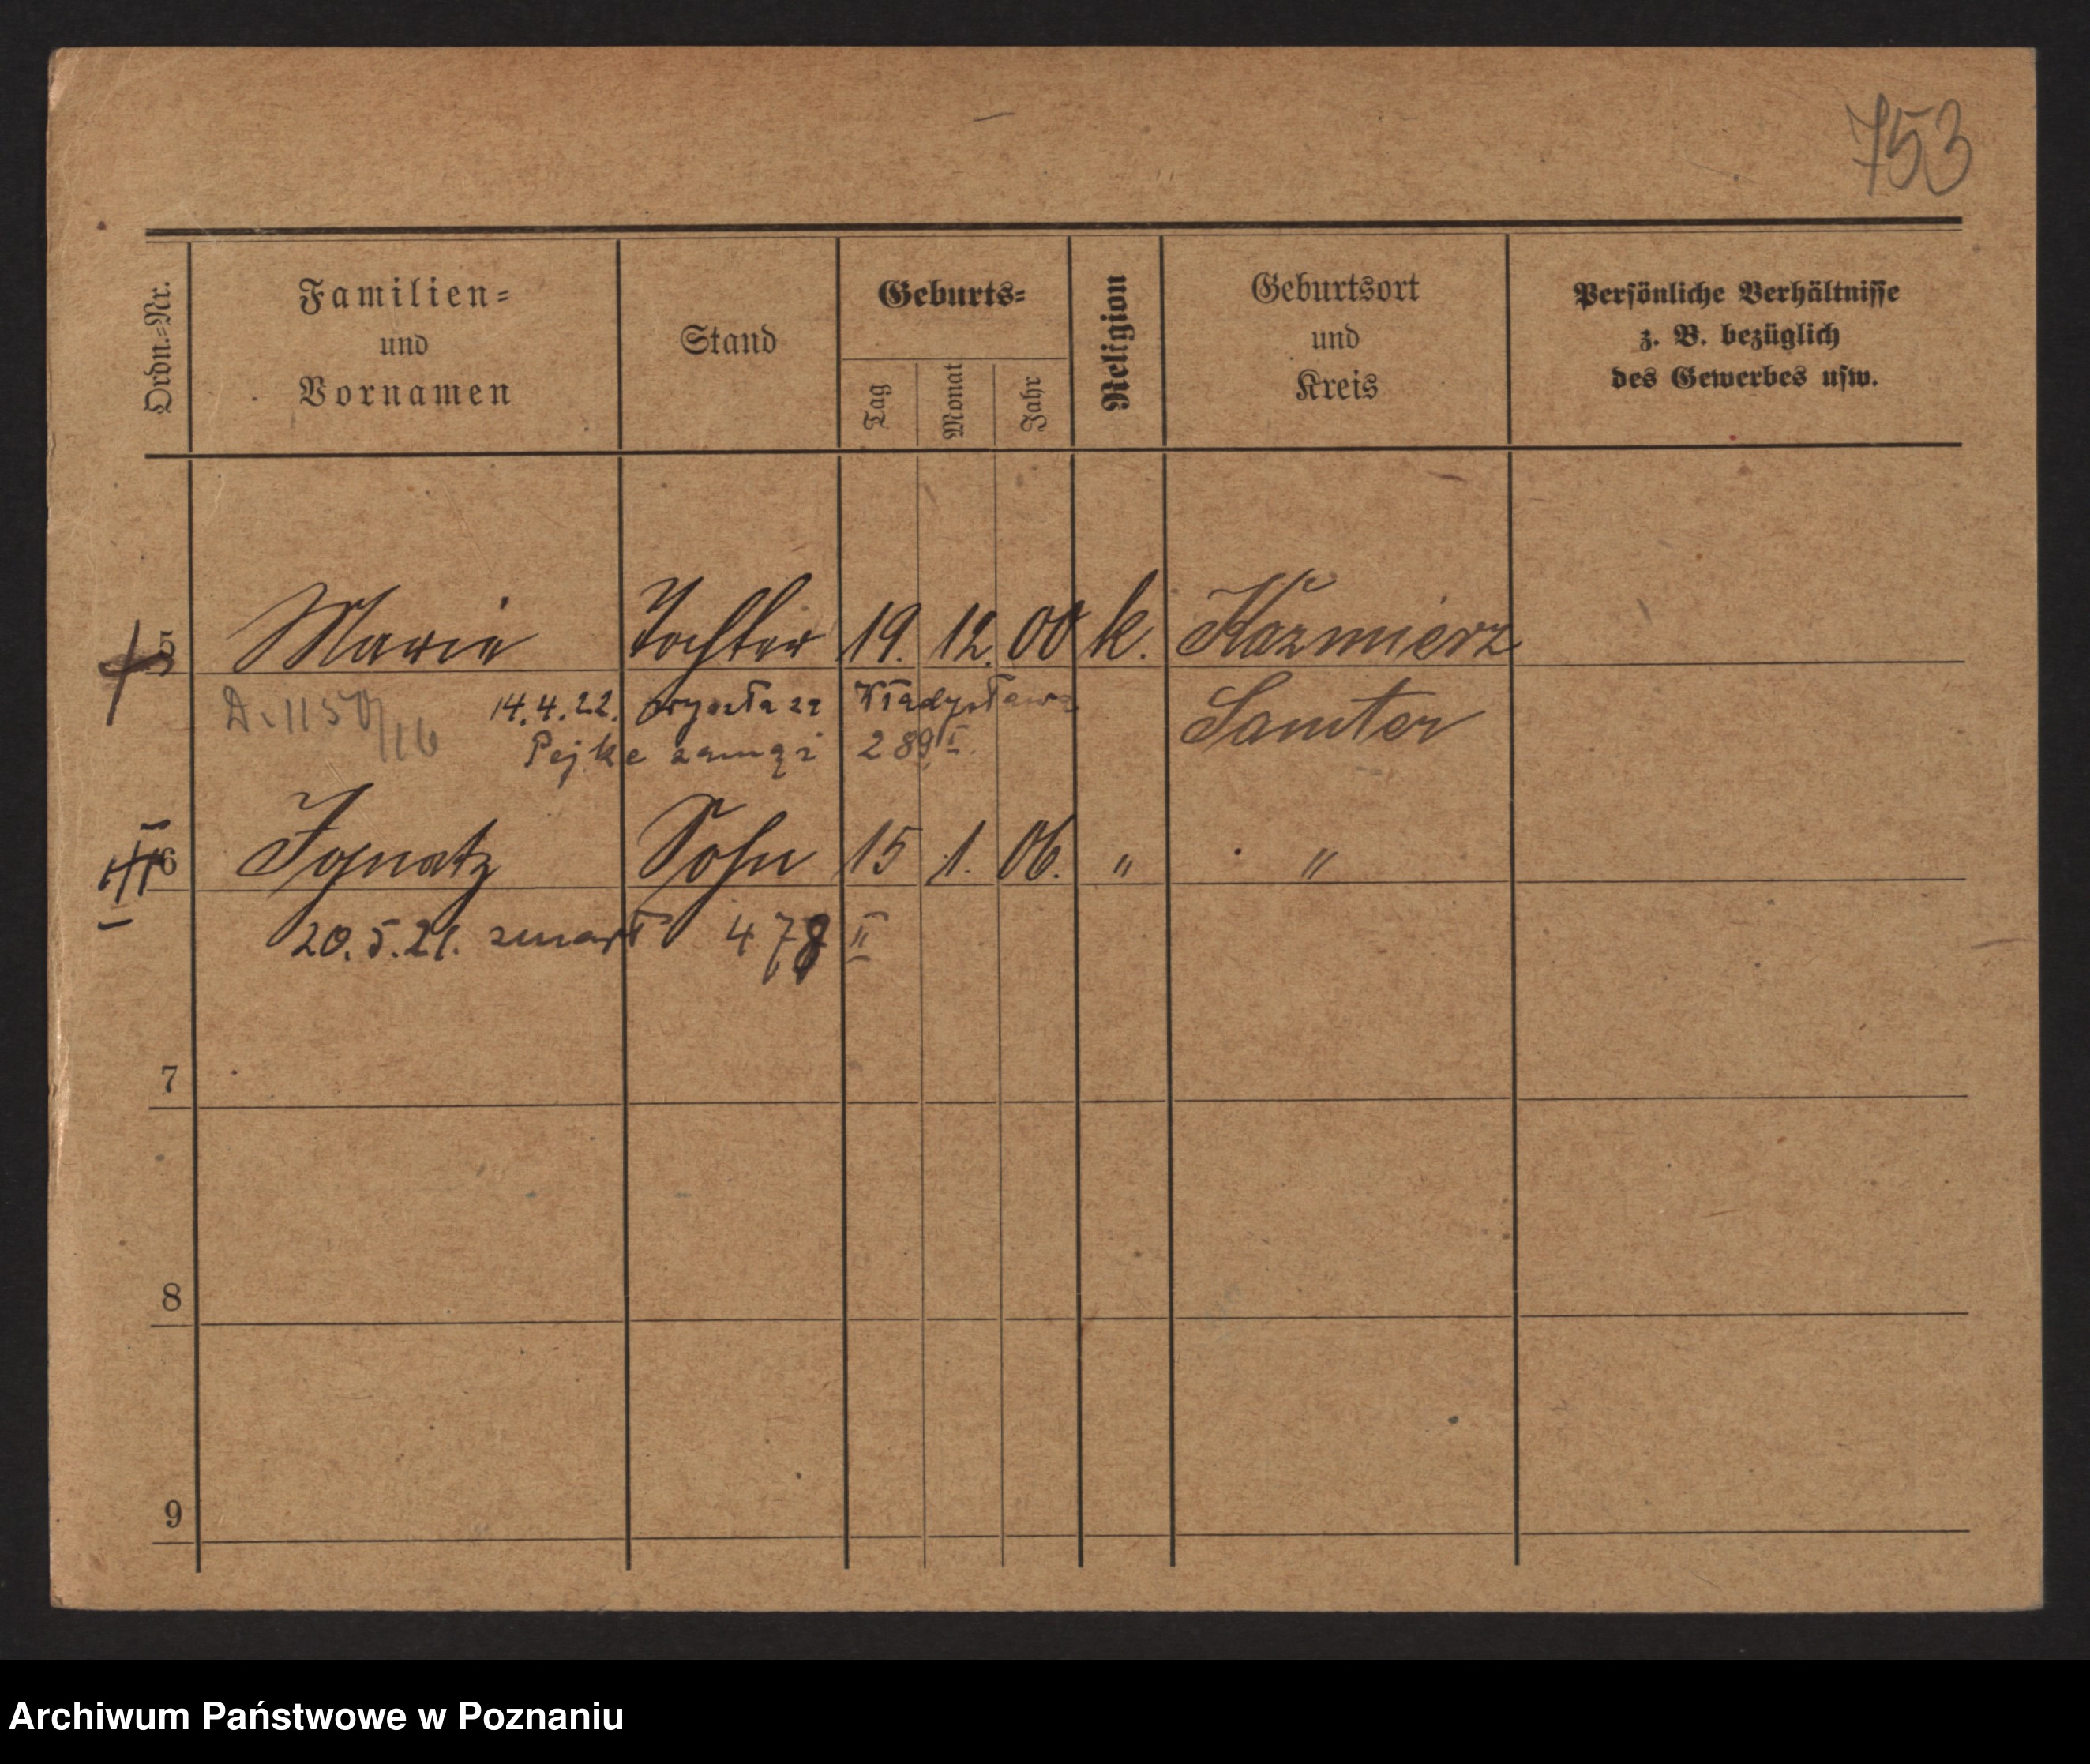 753
Ordn.-Nr.
Familien-
und
Vornamen
Stand
Geburts-
Tag
Monat
Jahr
Religion
Geburtsort
und
Kreis
Persönliche Verhältnisse
z. B. bezüglich
des Gewerbes usw.
5 Marie Tochter 19. 12. 00 k. Kazmierz
14.4.22. wyszła za Władysława Samter
Pejke zamąż 289 I.
6 Ignatz Sohn 15 1. 06. " "
20.5.21. zmarł 478 II
7
8
9
Archiwum Państwowe w Poznaniu